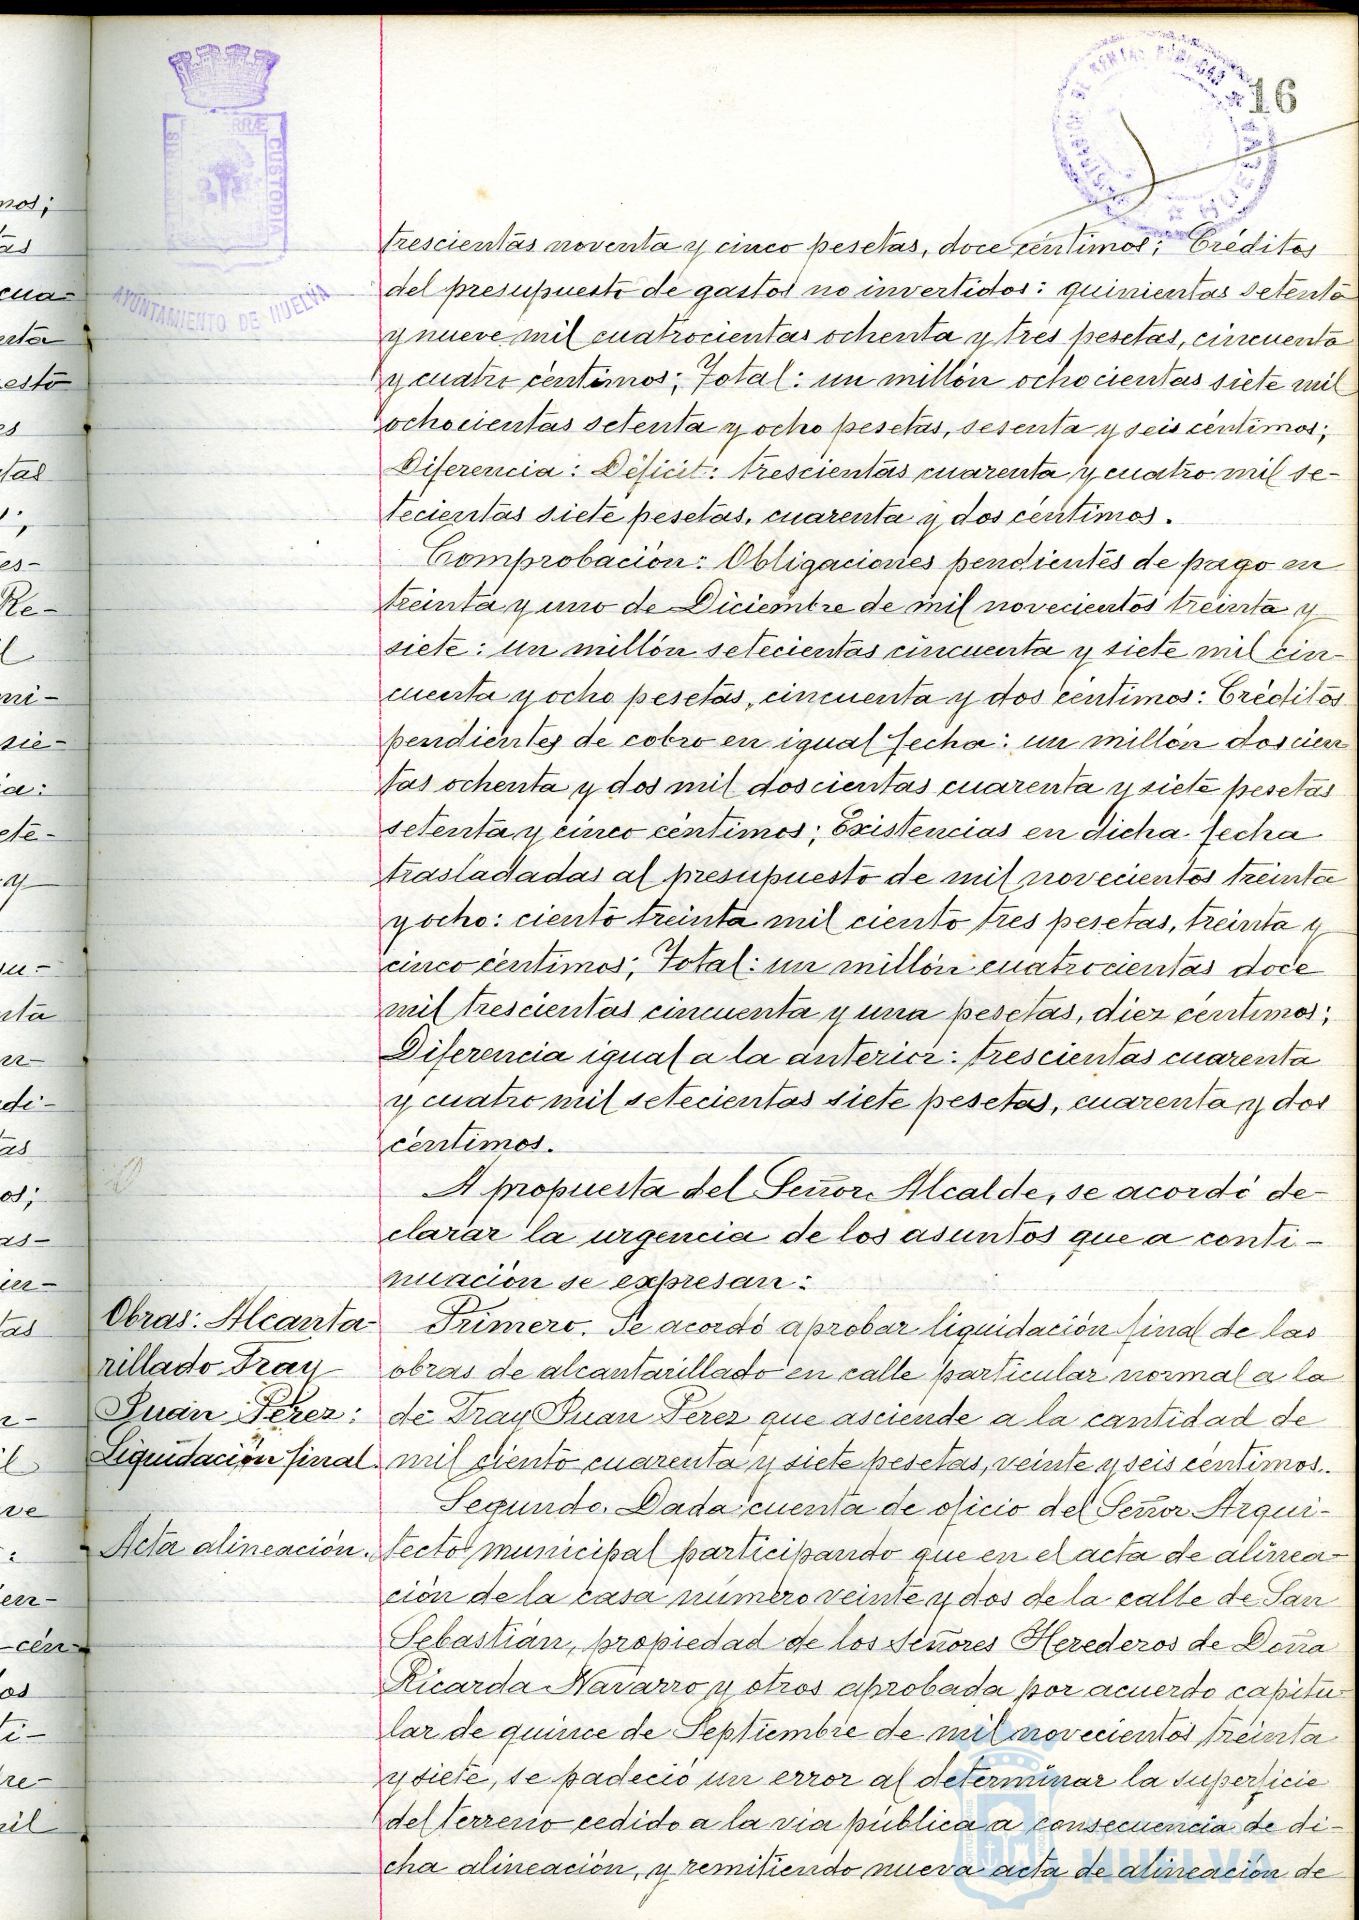 16
AYUNTAMIENTO DE HUELVA
CUSTODIA
trescientas noventa y cinco pesetas, doce céntimos; Créditos
del presupuesto de gastos no invertidos: quinientas setenta
y nueve mil cuatrocientas ochenta y tres pesetas, cincuenta
y cuatro céntimos; Total: un millón ochocientas siete mil
ochocientas setenta y ocho pesetas, sesenta y seis céntimos;
Diferencia: Déficit: trescientas cuarenta y cuatro mil se-
tecientas siete pesetas, cuarenta y dos céntimos.
Comprobación: Obligaciones pendientes de pago en
treinta y uno de Diciembre de mil novecientos treinta y
siete: un millón setecientas cincuenta y siete mil cin-
cuenta y ocho pesetas, cincuenta y dos céntimos: Créditos
pendientes de cobro en igual fecha: un millón doscien
tas ochenta y dos mil doscientas cuarenta y siete pesetas
setenta y cinco céntimos; Existencias en dicha fecha
trasladadas al presupuesto de mil novecientos treinta
y ocho: ciento treinta mil ciento tres pesetas, treinta y
cinco céntimos; Total: un millón cuatrocientas doce
mil trescientas cincuenta y una pesetas, diez céntimos;
Diferencia igual a la anterior: trescientas cuarenta
y cuatro mil setecientas siete pesetas, cuarenta y dos
céntimos.
A propuesta del Señor Alcalde, se acordó de-
clarar la urgencia de los asuntos que a conti-
nuación se expresan:
Obras: Alcanta-
rillado Fray
Juan Pérez:
Liquidación final.
Primero. Se acordó aprobar liquidación final de las
obras de alcantarillado en calle particular normal a la
de Fray Juan Perez que asciende a la cantidad de
mil ciento cuarenta y siete pesetas, veinte y seis céntimos.
Acta alineación.
Segundo. Dada cuenta de oficio del Señor Arqui-
tecto municipal participando que en el acta de alinea-
ción de la casa número veinte y dos de la calle de San
Sebastián, propiedad de los señores Herederos de Doña
Ricarda Navarro y otros aprobada por acuerdo capitu-
lar de quince de Septiembre de mil novecientos treinta
y siete, se padeció un error al determinar la superficie
del terreno cedido a la via pública a consecuencia de di-
cha alineación, y remitiendo nueva acta de alineación de
HUELVA